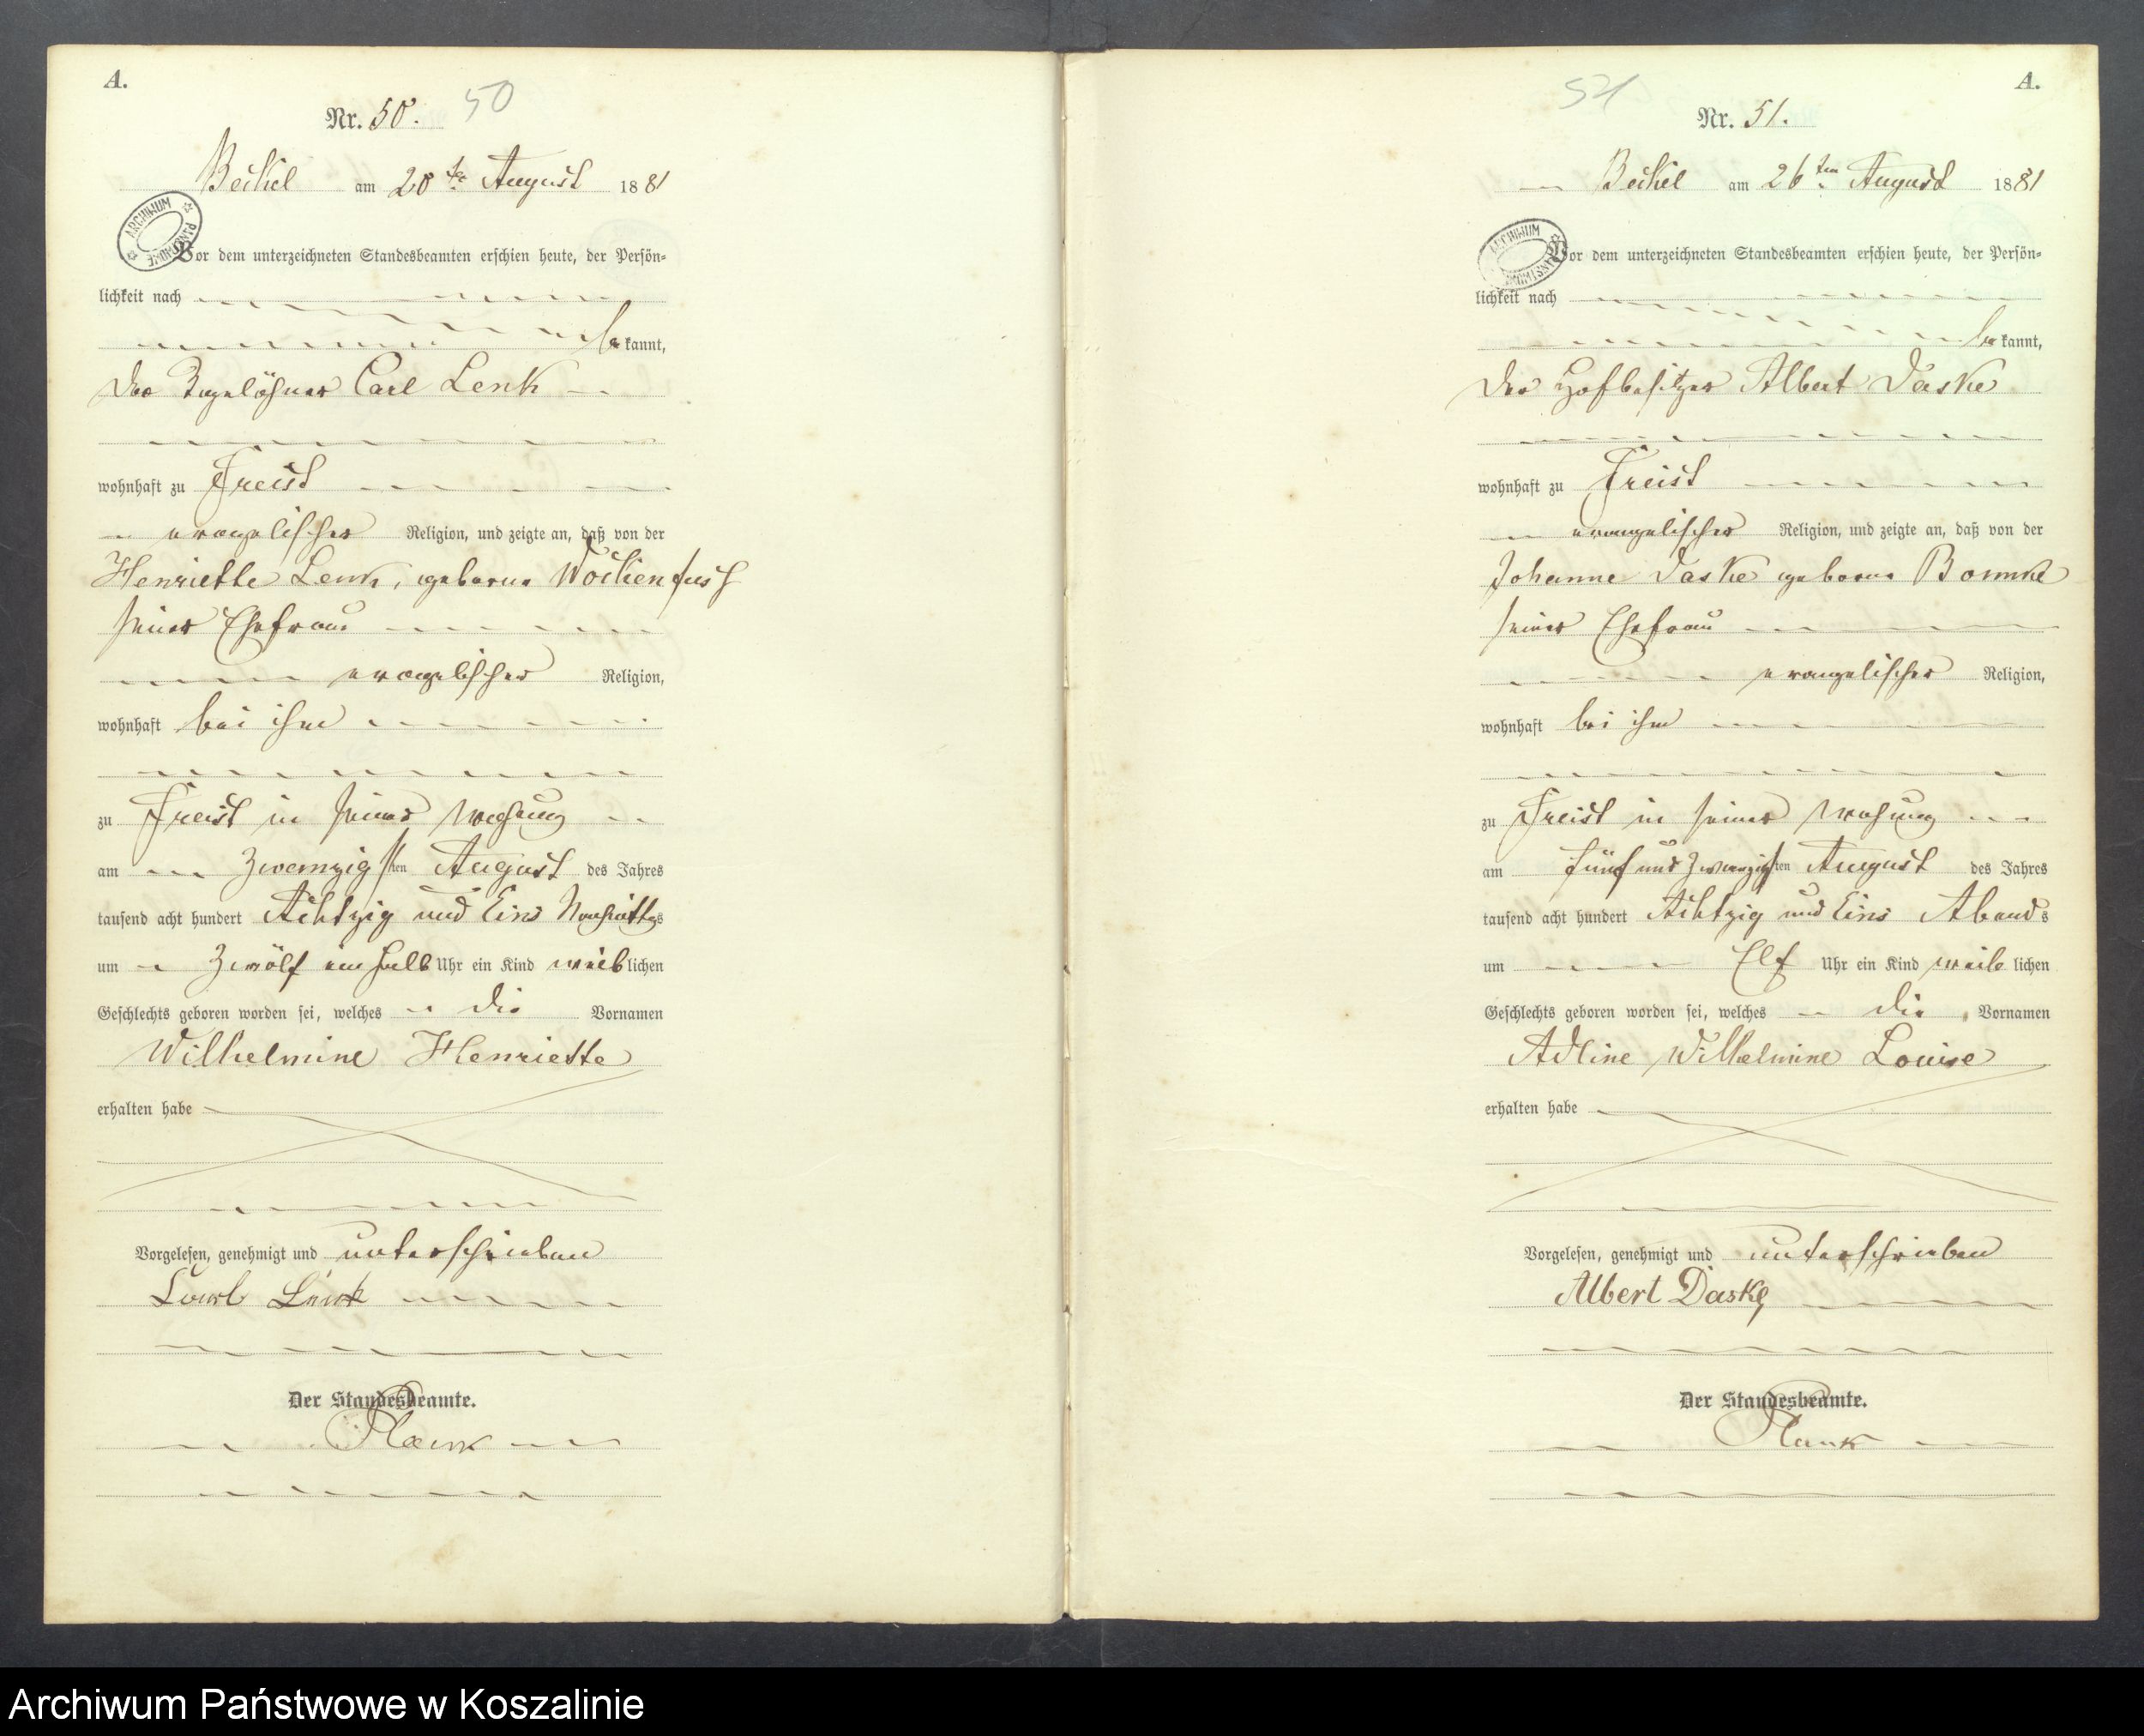 A.
Nr. 50. 50
Beckel am 20ten August 1881
ARCHIWUM PAŃSTWOWE
Vor dem unterzeichneten Standesbeamten erschien heute, der Persön=
lichkeit nach
bekannt,
der Tagelöhner Carl Lenk
wohnhaft zu Freist
evangelischer Religion, und zeigte an, daß von der
Henriette Lenk, geborne Wockenfuss
seiner Ehefrau
evangelischer Religion,
wohnhaft bei ihm
zu Freist in seiner Wohnung
am zwanzigsten August des Jahres
tausend acht hundert Achtzig und Eins Nachmittags
um Zwölf ein halb Uhr ein Kind weiblichen
Geschlechts geboren worden sei, welches die Vornamen
Wilhelmine Henriette
erhalten habe
Vorgelesen, genehmigt und unterschrieben
Carl Lenk
Der Standesbeamte.
A.
51
Nr. 51.
Beckel am 26ten August 1881
ARCHIWUM PAŃSTWOWE
Vor dem unterzeichneten Standesbeamten erschien heute, der Persön=
lichkeit nach
bekannt,
der Hofbesitzer Albert Daske
wohnhaft zu Freist
evangelischer Religion, und zeigte an, daß von der
Johanne Daske geborne
seiner Ehefrau
evangelischer Religion,
wohnhaft bei ihm
zu Freist in seiner Wohnung
am fünf und zwanzigsten August des Jahres
tausend acht hundert Achtzig und Eins Abends
um Elf Uhr ein Kind weiblichen
Geschlechts geboren worden sei, welches die Vornamen
Adline Wilhelmine Louise
erhalten habe
Vorgelesen, genehmigt und unterschrieben
Albert Daske
Der Standesbeamte.
Archiwum Państwowe w Koszalinie